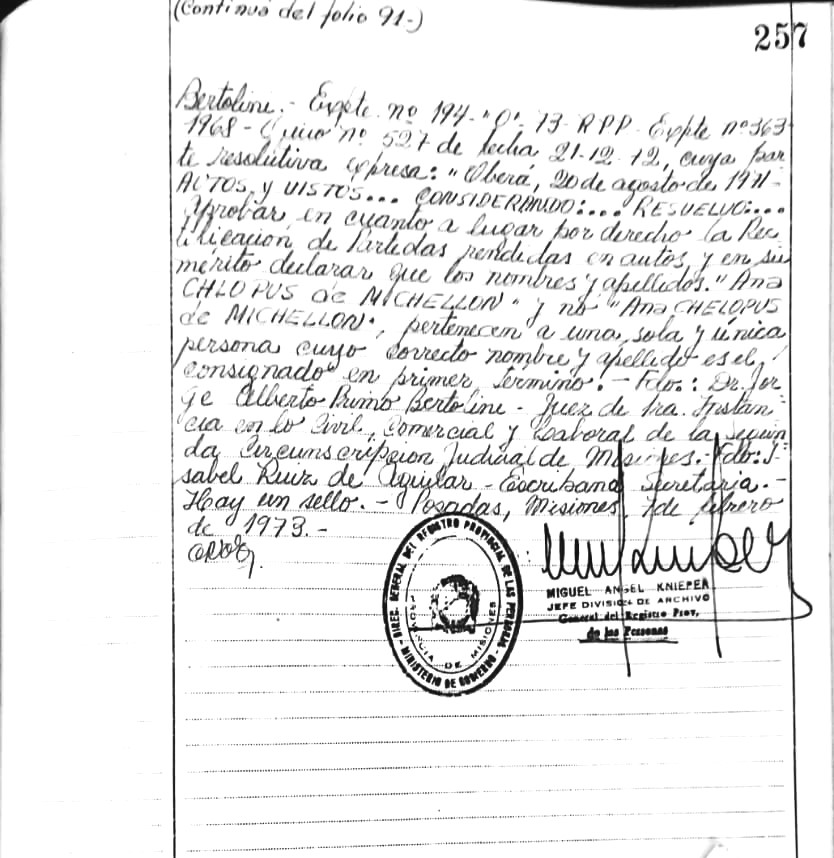 (Continua del folio 91-)
257
Bertolini.- Expte nº 194-"O"-73-RPP- Expte nº 363-
1968- nº 527 de fecha 21-12-72, cuya par
te resolutiva expresa: "Oberá, 20 de agosto de 1971-
AUTOS y VISTOS... CONSIDERANDO:... RESUELVO:...
Aprobar, en cuanto a lugar por derecho la Rec
tificación de Partidas rendidas en autos, y en su
mérito declarar que los nombres y apellidos "Ana
CHLOPUS de MICHELLON" y no "Ana CHELOPUS
de MICHELLON", pertenecen a una sola y única
persona cuyo correcto nombre y apellido es el
consignado en primer término.- Fdo.: Dr. Jor
ge Alberto Primo Bertolini- Juez de 1ra. Instan
cia en lo Civil, Comercial y Laboral de la Segun
da Circunscripción Judicial de Misiones.- Fdo: I-
sabel Ruiz de Aguilar- Escribana Secretaria.-
Hay un sello.- Posadas, Misiones, 7 de febrero
de 1973.-
DIREC. GENERAL DEL REGISTRO PROVINCIAL DE LAS PERSONAS
MINISTERIO DE GOBIERNO
PROVINCIA DE MISIONES
MIGUEL ANGEL KNIEPER
JEFE DIVISION DE ARCHIVO
General del Registro Prov.
de las Personas